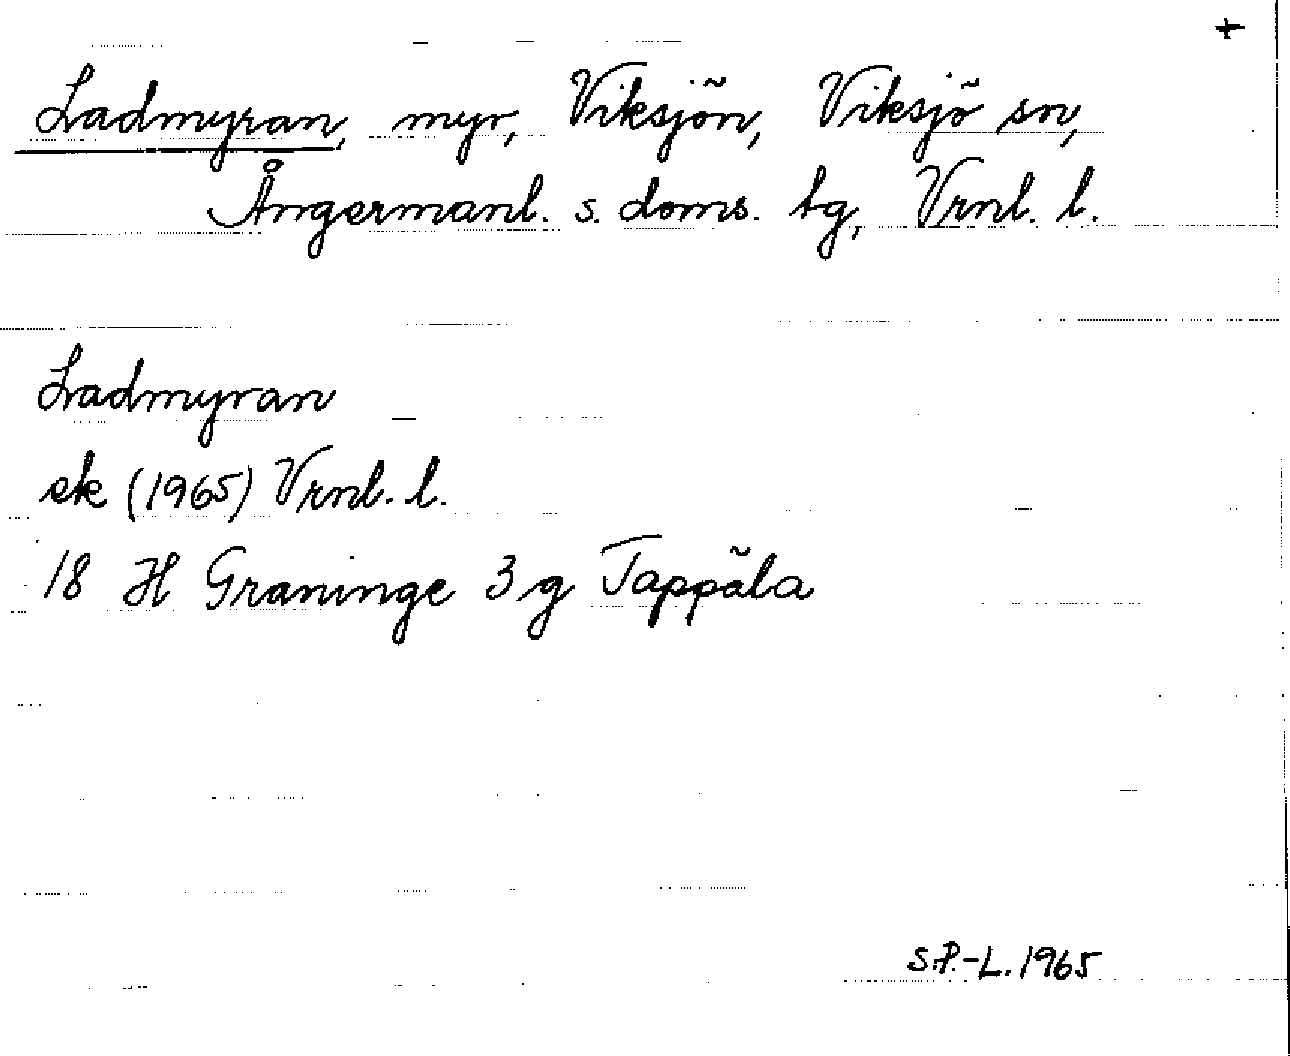 +
Ladmyran, myr, Viksjön, Viksjö sn,
Ångermanl. s. doms. tg, Vrnl. l.
Ladmyran
ek (1965) Vrnl. l.
18 H Graninge 3g Tappåla
S.P.-L. 1965